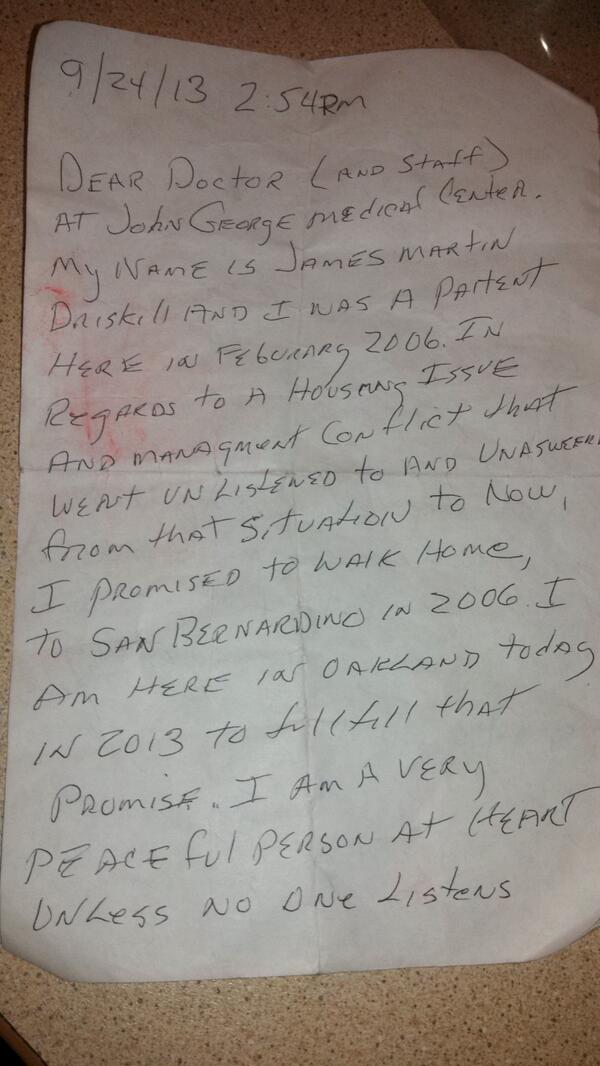 9/24/13 2:54PM
DEAR DOCTOR (AND STAFF)
AT JOHN GEORGE MEDICAL CENTER.
MY NAME IS JAMES MARTIN
DRISKILL AND I WAS A PATIENT
HERE IN FEBURARY 2006. IN
REGARDS TO A HOUSING ISSUE
AND MANAGMENT CONFLICT THAT
WENT UNLISTENED TO AND UNASWEER
FROM THAT SITUATION TO NOW,
I PROMISED TO WALK HOME,
TO SAN BERNARDINO IN 2006. I
AM HERE IN OAKLAND TODAY
IN 2013 TO FULLFILL THAT
PROMISE. I AM A VERY
PEACEFUL PERSON AT HEART
UNLESS NO ONE LISTENS